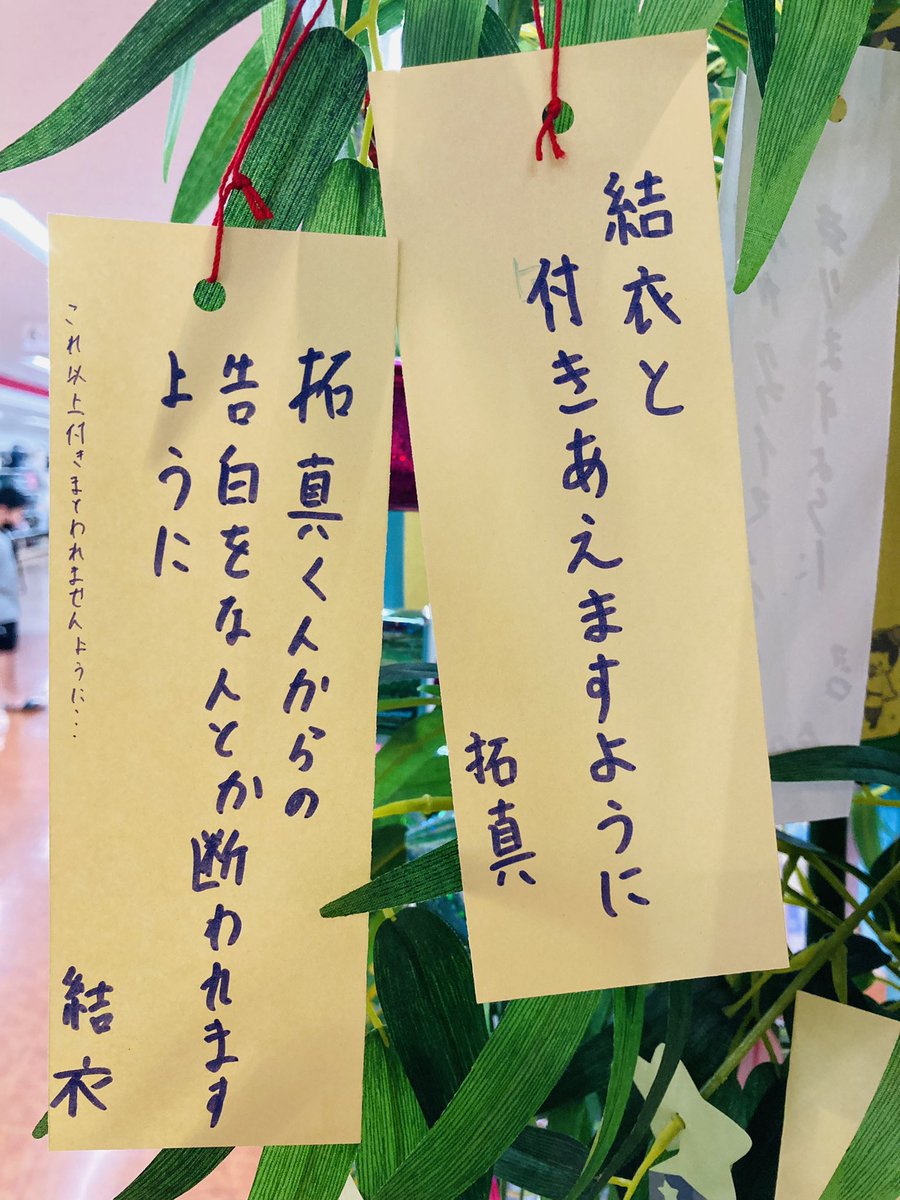 結衣と
付きあえますように
拓真
拓真くんからの
告白をなんとか断われます
ように
これ以上付きまとわれませんように…
結衣